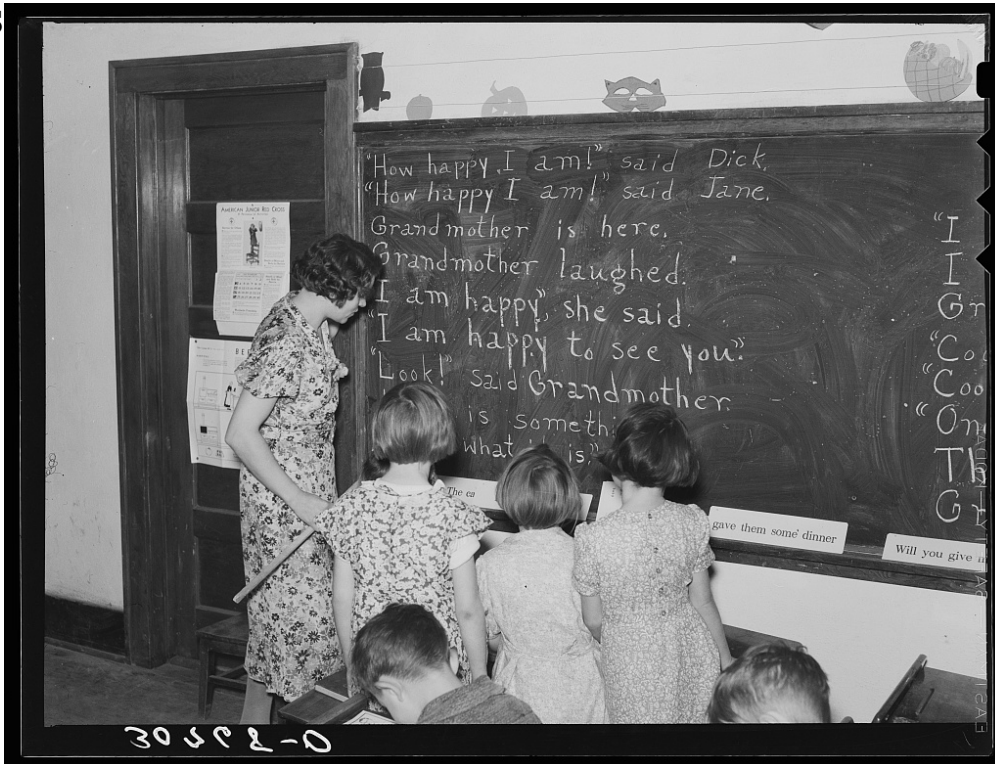 AMERICAN JUNIOR RED CROSS
"How happy I am!" said Dick.
"How happy I am!" said Jane.
Grandmother is here.
Grandmother laughed.
"I am happy", she said.
"I am happy to see you".
"Look!" said Grandmother.
is someth
what is
"I
I
Gr
"Co
"Coo
"On
Th
G
The ca
gave them some dinner
Will you give m
30768-D